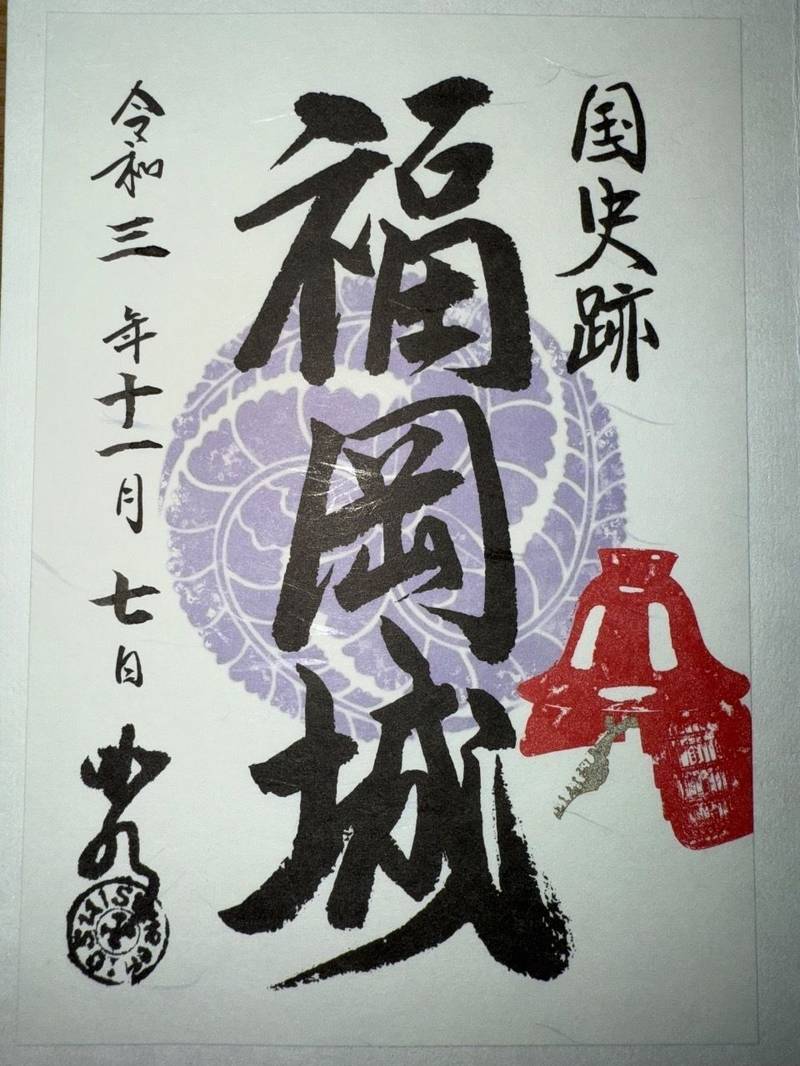 国史跡
福岡城
令和三年十一月七日